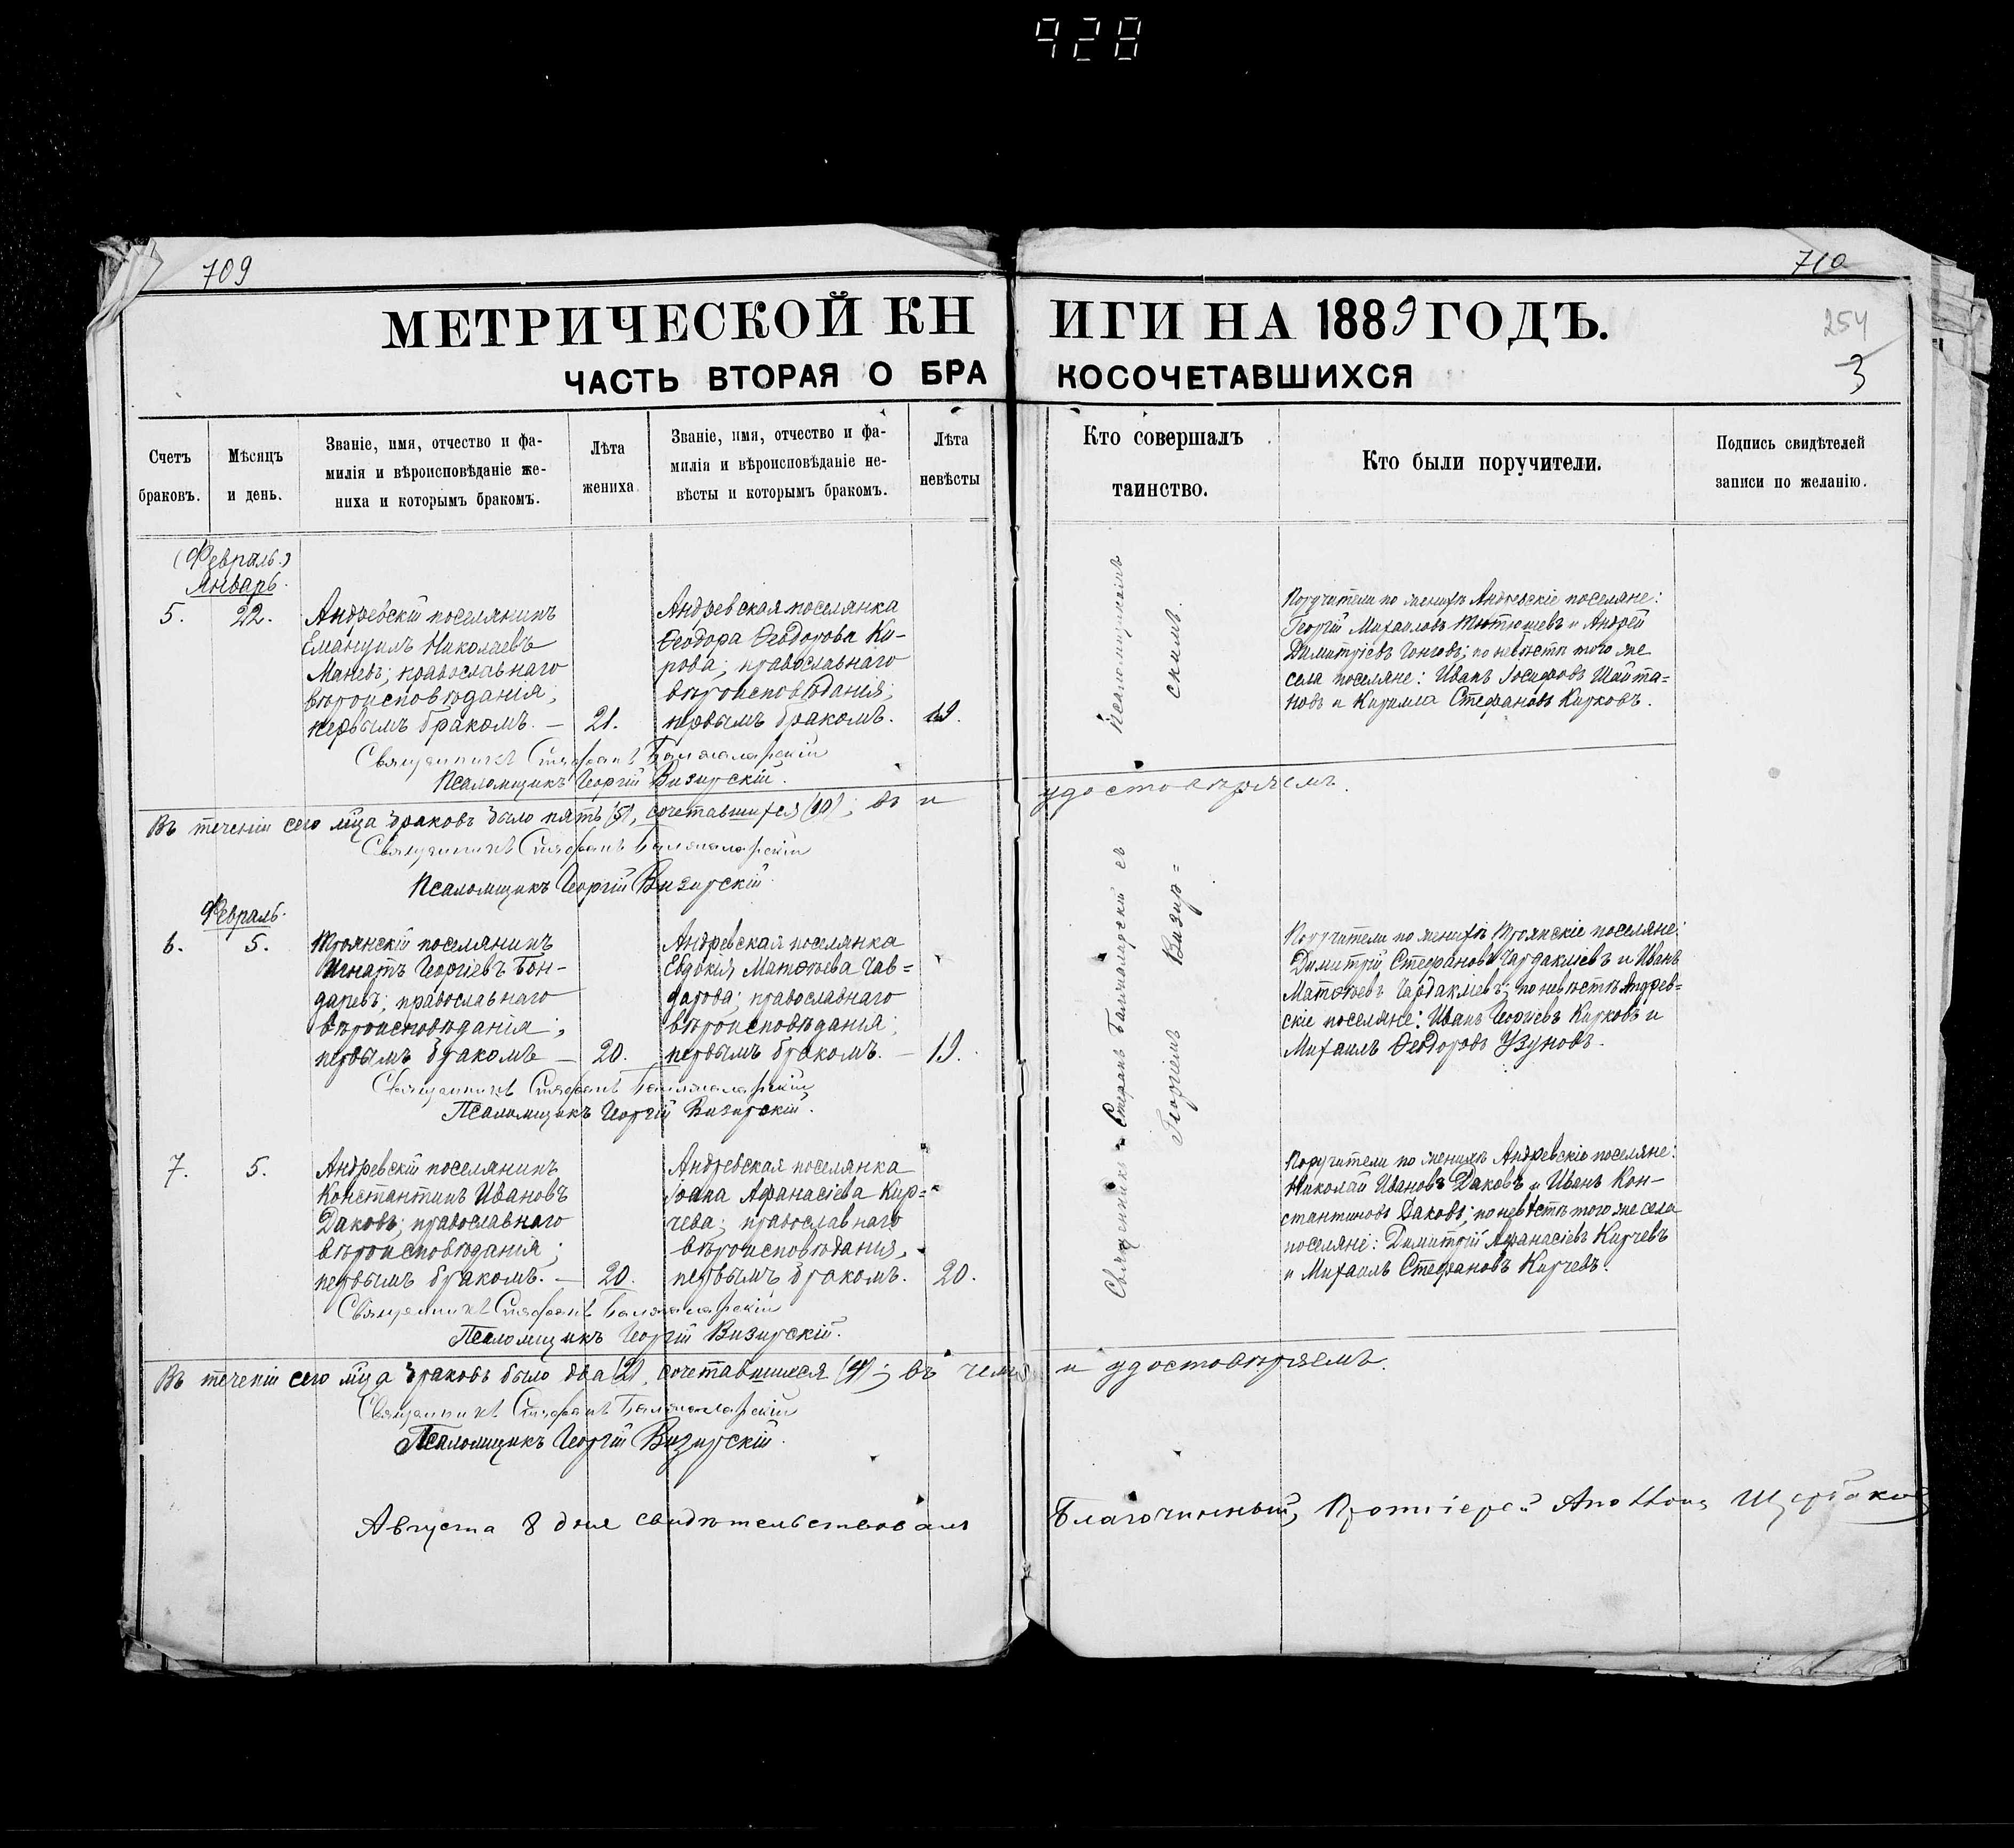 928
709
710
МЕТРИЧЕСКОЙ КНИГИ НА 1889 ГОДЪ.
254
3
ЧАСТЬ ВТОРАЯ О БРАКОСОЧЕТАВШИХСЯ
Счетъ
браковъ.
Мѣсяцъ
и день.
Званіе, имя, отчество и фа-
милія и вѣроисповѣданіе же-
ниха и которымъ бракомъ.
Лѣта
жениха
Званіе, имя, отчество и фа-
милія и вѣроисповѣданіе не-
вѣсты и которымъ бракомъ.
Лѣта
невѣсты
Кто совершалъ
таинство.
Кто были поручители.
Подпись свидѣтелей
записи по желанію.
(Февраль.)
Январь.
5. 22.
Андревскій поселянинъ
Емануилъ Николаевъ
Маневъ; православнаго
вѣроисповѣданія;
первымъ бракомъ. — 21.
Андревская поселянка
Ѳеодора Ѳеодорова Ки-
рова; православнаго
вѣроисповѣданія;
первымъ бракомъ. 19.
Поручители по женихѣ Андревскіе поселяне:
Георгій Михаиловъ Тютюшевъ и Андрей
Димитріевъ Гонговъ; по невѣстѣ того же
села поселяне: Иванъ Іосифовъ Шайта-
новъ и Кирилла Стефановъ Курковъ.
Священникъ Стефанъ Балжаларскій
Псаломщикъ Георгій Визирскій.
Въ теченіи сего м-ца браковъ было пять (5), сочетавшихся (10); въ и удостовѣряемъ.
Священникъ Стефанъ Балжаларскій
Псаломщикъ Георгій Визирскій.
Февраль.
6. 5.
Троянскій поселянинъ
Игнатъ Георгіевъ Бон-
даревъ; православнаго
вѣроисповѣданія;
первымъ бракомъ — 20.
Андревская поселянка
Евдокія Матѳѣева Чав-
дарова; православнаго
вѣроисповѣданія;
первымъ бракомъ. — 19.
Поручители по женихѣ Троянскіе поселяне:
Димитрій Стефановъ Чардакліевъ и Иванъ
Матѳѣевъ Чардакліевъ; по невѣстѣ Андрев-
скіе поселяне: Иванъ Георгіевъ Курковъ и
Михаилъ Ѳеодоровъ Узуновъ.
Священникъ Стефанъ Балжаларскій
Псаломщикъ Георгій Визирскій.
7. 5.
Андревскій поселянинъ
Константинъ Ивановъ
Даковъ; православнаго
вѣроисповѣданія;
первымъ бракомъ. — 20.
Андревская поселянка
Іоана Афанасіева Кир-
чева; православнаго
вѣроисповѣданія,
первымъ бракомъ. 20.
Поручители по женихѣ Андревскіе поселяне:
Николай Ивановъ Даковъ и Иванъ Кон-
стантиновъ Даковъ; по невѣстѣ того же села
поселяне: Димитрій Афанасіевъ Кирчевъ
и Михаилъ Стефановъ Кирчевъ.
Священникъ Стефанъ Балжаларскій
Псаломщикъ Георгій Визирскій.
Священникъ Стефанъ Балжаларскій съ псаломщикомъ
Георгіемъ Визир=
скимъ.
Въ теченіи сего м-ца браковъ было два (2), сочетавшихся (4); въ чемъ и удостовѣряемъ.
Священникъ Стефанъ Балжаларскій
Псаломщикъ Георгій Визирскій.
Августа 8 дня свидѣтельствовалъ Благочинный, Протіерей